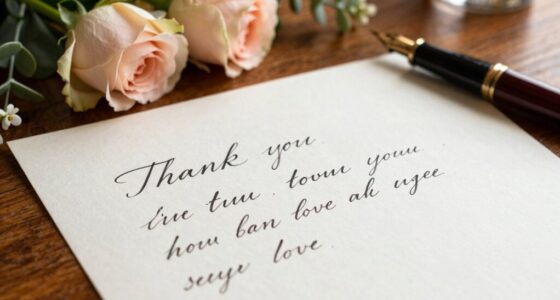 Thank you
tuu . toum youu
hou ban love ak ugee
seuye love